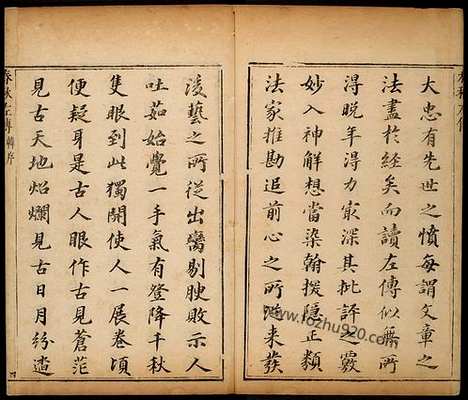 大忠有先世之憤每謂文章之
法盡於經矣而讀左傳似無所
得晚年得力最深其批評之竅
妙入神解想當染翰搜隱正類
法家推勘追前心之所從來發
浚藝之所從出臠剔腴敗示人
吐茹始覺一手氣有登降千秋
隻眼到此獨開使人一展卷頃
便疑身是古人眼作古見蒼茫
見古天地焰爛見古日月紛遝
春秋左傳
序
四
www.fozhu920.com